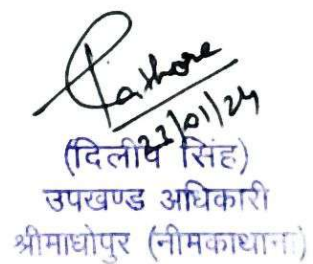 Rathore
23/01/24
(दिलीप सिंह)
उपखण्ड अधिकारी
श्रीमाधोपुर (नीमकाथाना)